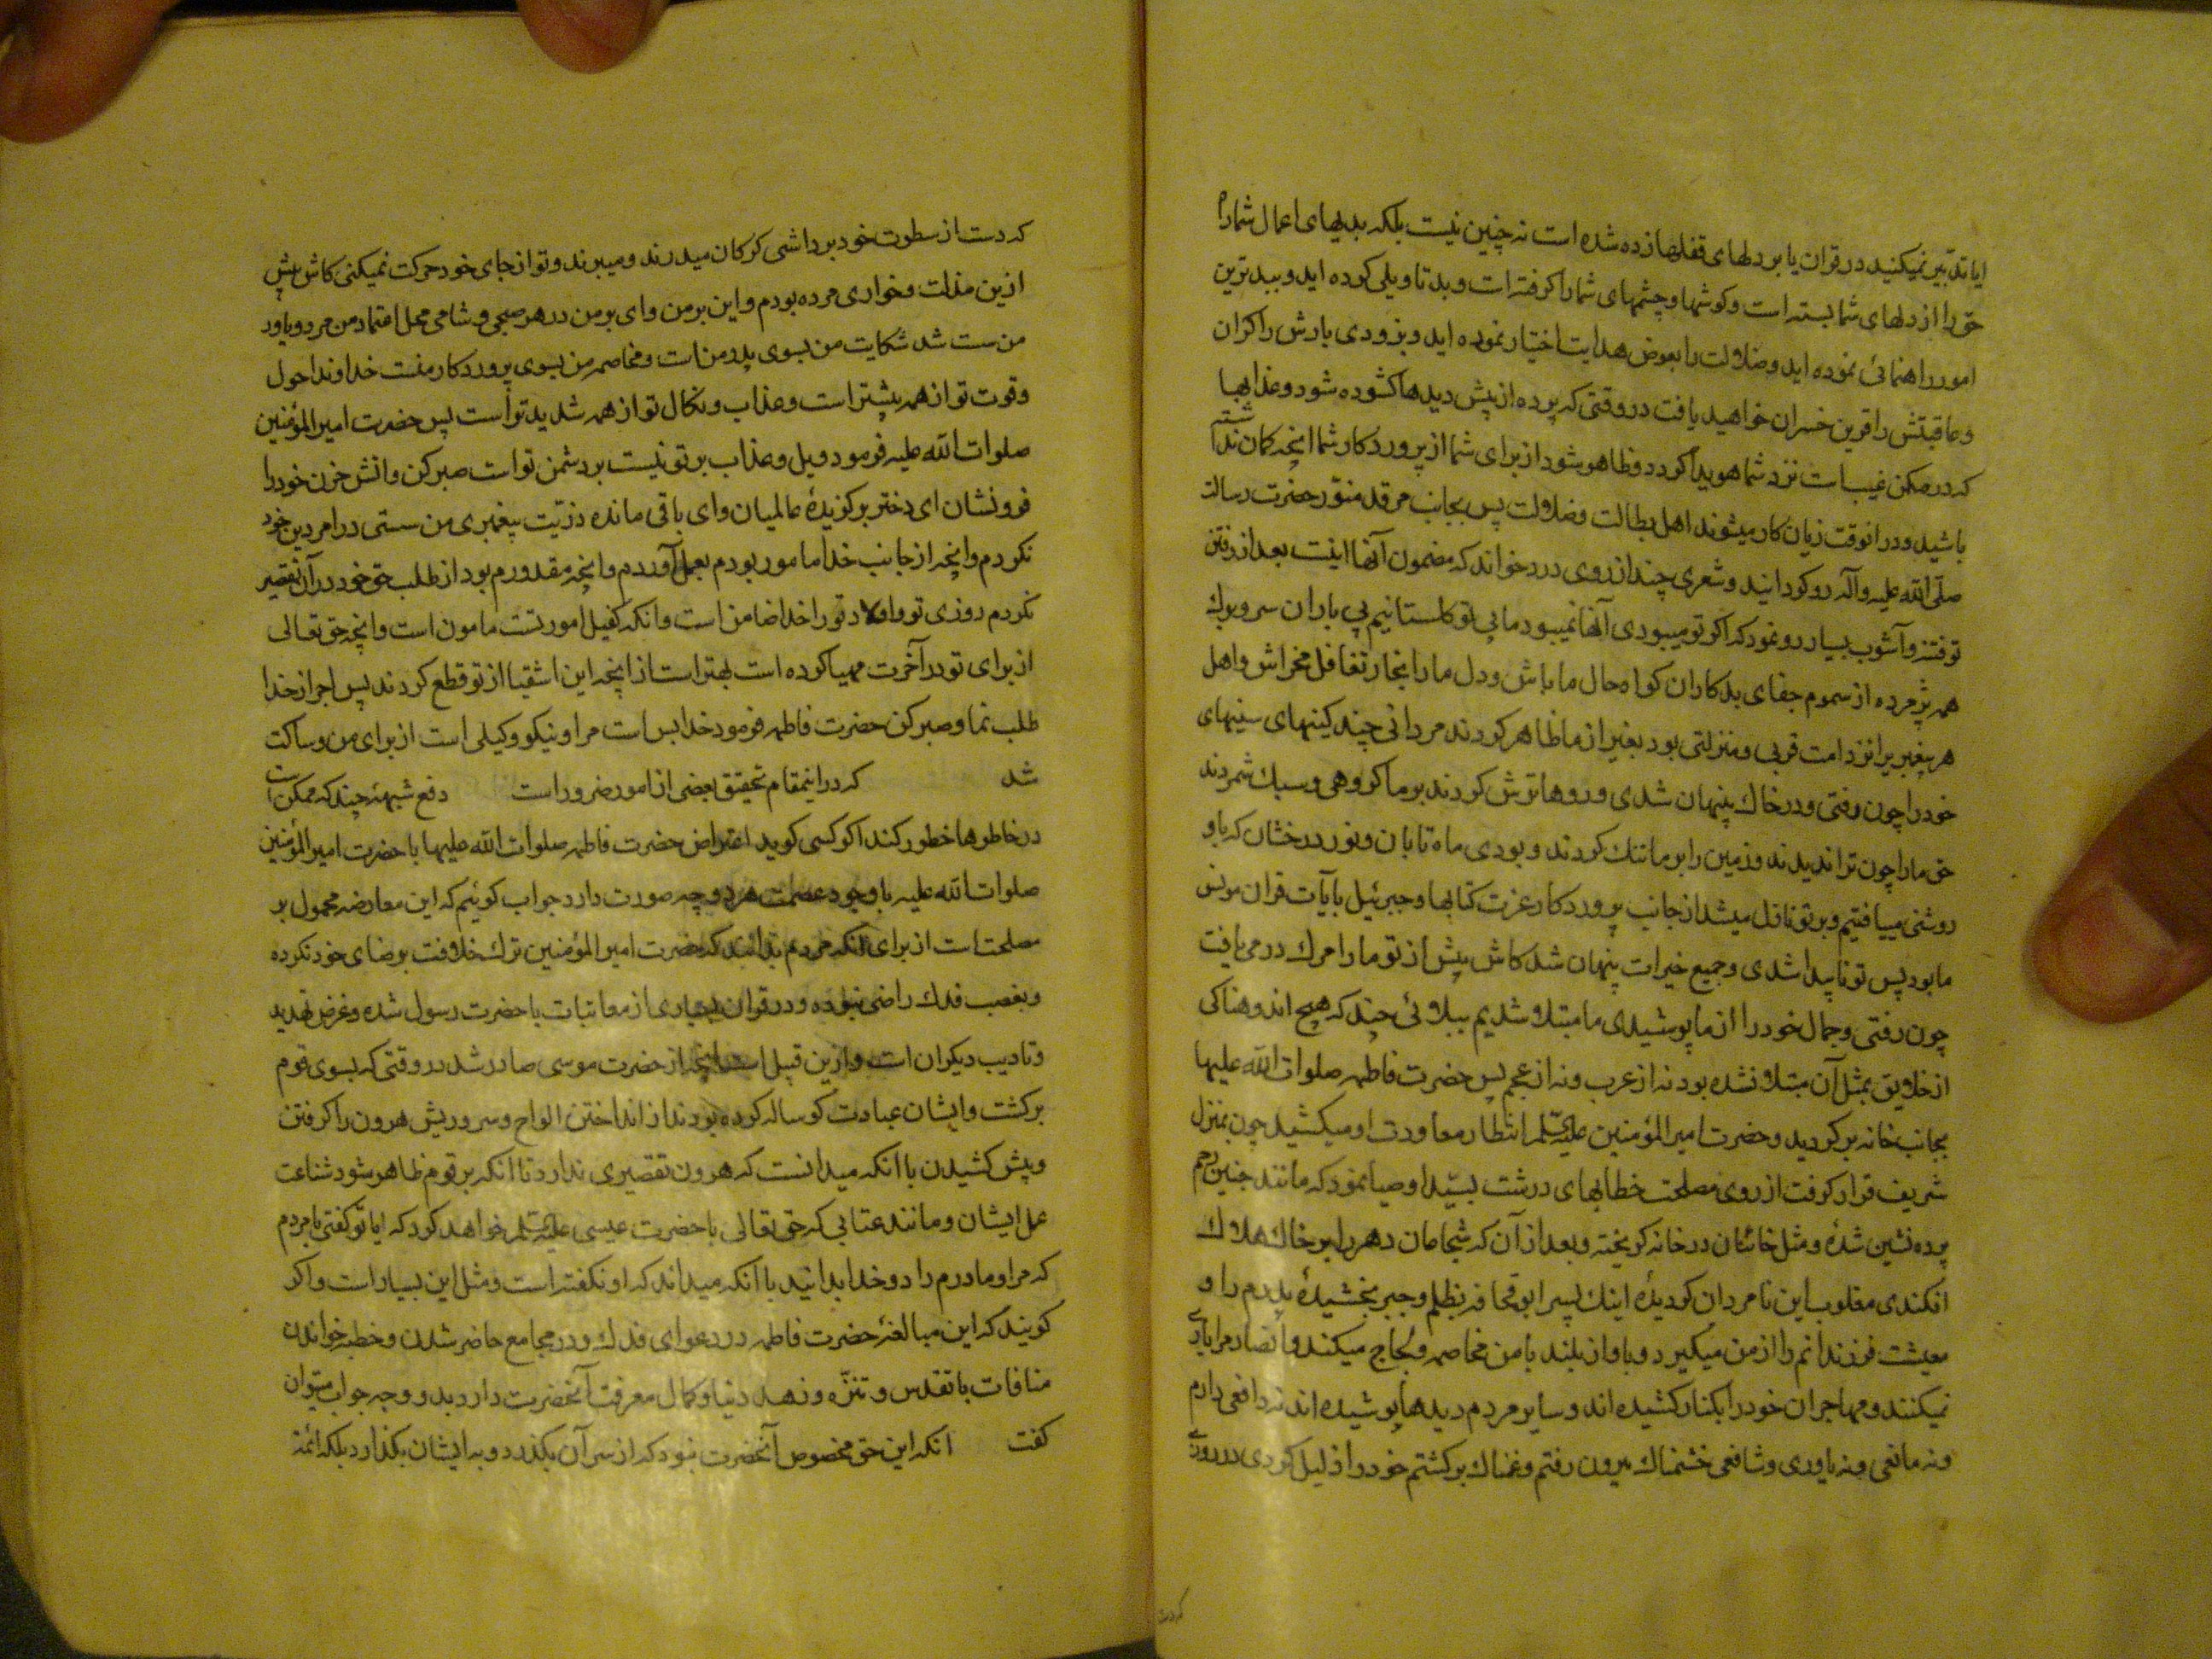 ایا تدبیر نمیکنید در قران یا بر دلهای قفلها زده شده است نه چنین نیست بلکه بدیهای اعمال شما راه
حق را از دلهای شما بسته است و کوشها و چشمهای شما را کرفته است و بد تاویلی کرده اید و ببد ترین
امور راهنمائی نموده اید و ضلالت را بعوض هدایت اختیار نموده اید و بزودی بارش را کران
و عاقبتش را قرین خسران خواهید یافت در وقتی که پرده از پیش دیدها کشوده شود و عذابها
که در مکمن غیب است نزد شما هویدا کردد و ظاهر شود از برای شما از پرورد کار شما انچه کمان نداشته
باشید و در انوقت زیان کار میشوند اهل بطالت و ضلالت پس بجانب مرقد منور حضرت رسالت
صلی الله علیه وآله رو کردانید و شعری چند از روی درد خواند که مضمون آنها اینست بعد از رفتن
تو فتنه و آشوب بسیار رو نمود که اکر تو میبودی آنها نمیبود ما بی تو کلستانیم بی باران سر و برك
همه پژمرده از سموم جفای بدکاران کواه حال ما باش و دل ما را بخار تغافل مخراش و اهل
هر پیغمبریرا نزد امت قربی و منزلتی بود بغیر از ما ظاهر کردند مردانی چند کینهای سینهای
خود را چون رفتی و در خاك پنهان شدی و روها ترش کردند بر ما کروهی و سبك شمردند
حق ما را چون ترا ندیدند و زمین را بر ما تنك کردند و بودی ماه تابان و نور درخشان که باو
روشنی مییافتیم و بر تو نازل میشد از جانب پروردکار عزت کتابها و جبرئیل بآیات قران مونس
ما بود پس تو ناپیدا شدی و جمیع خیرات پنهان شد کاش پیش از تو ما را مرك در می یافت
چون رفتی و جمال خود را از ما پوشیدی ما مبتلا شدیم ببلائی چند که هیچ اندوهناکی
از خلایق بمثل آن مبتلا نشده بود نه از عرب و نه از عجم پس حضرت فاطمه صلوات الله علیها
بجانب خانه بر کردید و حضرت امیر المؤمنین علیه السلم انتظار معاودت او میکشید چون بمنزل
شریف قرار کرفت از روی مصلحت خطابهای درشت بسید اوصیا نمود که مانند جنین رحم
پرده نشین شدهٔ و مثل خائنان در خانه کریخته و بعد از آن که شجاعان دهر را بر خاك هلاك
افکندی مغلوب این نامردان کردیدهٔ اینك پسر ابو قحافه بظلم و جبر بخشیدهٔ پدرم را و
معیشت فرزندانم را از من میکیرد و باواز بلند با من مخاصمه و لجاج میکند و انصار مرا یاری
نمیکنند و مهاجران خود را بکنار کشیده اند و سایر مردم دیدها پوشیده اند نه دافعی دارم
و نه مانعی و نه یاوری و شافعی خشمناك بیرون رفتم و غمناك بر کشتم خود را ذلیل کردی در روزی
که دست از سطوت خود برداشتی کرکان میدرند و میبرند و تو از جای خود حرکت نمیکنی کاش پیش
ازین مذلت و خواری مرده بودم و این بر من وای بر من در هر صبحی و شامی محل اعتماد من مرد و یاور
من سست شد شکایت من بسوی پدر من است و مخاصمه من بسوی پروردکار منست خداوندا حول
و قوت تو از همه بیشتر است و عذاب و نکال تو از همه شدید تر است پس حضرت امیر المؤمنین
صلوات الله علیه فرمود ویل و عذاب بر تو نیست بر دشمن تو است صبر کن و اتش حزن خود را
فرو نشان ای دختر برکزیدهٔ عالمیان و ای باقی مانده ذریت پیغمبری من سستی در امر دین خود
نکردم و انچه از جانب خدا مامور بودم بعمل آوردم و انچه مقدورم بود از طلب حق خود در آن تقصیر
نکردم روزی تو و اولاد تو را خدا ضامن است و انکه کفیل امور تست مامون است و انچه حق تعالی
از برای تو در آخرت مهیا کرده است بهتر است از انچه این اشقیا از تو قطع کردند پس اجر از خدا
طلب نما و صبر کن حضرت فاطمه فرمود خدا بس است مرا و نیکو وکیلی است از برای من و ساکت
شد که در اینمقام تحقیق بعضی از امور ضرور است دفع شبهه چند که ممکن است
در خاطرها خطور کند اکر کسی کوید اعتراض حضرت فاطمه صلوات الله علیها با حضرت امیر المؤمنین
صلوات الله علیه با وجود عصمت هر دو چه صورت دارد جواب کوئیم که این معارضه محمول بر
مصلحت است از برای انکه مردم بدانند که حضرت امیر المؤمنین ترك خلافت برضای خود نکرده
و بغصب فدك راضی نبوده و در قران بسیاری از معاتبات با حضرت رسول شده و غرض تهدید
و تادیب دیکران است و ازین قبیل است انچه از حضرت موسی صادر شد در وقتی که بسوی قوم
برکشت و ایشان عبادت کوساله کرده بودند از انداختن الواح و سر و ریش هرون را کرفتن
و پیش کشیدن با انکه میدانست که هرون تقصیری ندارد تا انکه بر قوم ظاهر شود شناعت
عمل ایشان و مانند عتابی که حق تعالی با حضرت عیسی علیه السلم خواهد کرد که ایا تو کفتی بامردم
که مرا و مادرم را دو خدا بدانید با انکه میداند که او نکفته است و مثل این بسیار است و اکر
کویند که این مبالغهٔ حضرت فاطمه در دعوای فدك و در مجامع حاضر شدن و خطبه خواندن
منافات با تقدس و تنزه و زهد دنیا و کمال معرفت آنحضرت دارد بدو وجه جواب میتوان
کفت انکه این حق مخصوص آنحضرت نبود که از سر آن بکذرد و به ایشان بکذارد بلکه ائمه